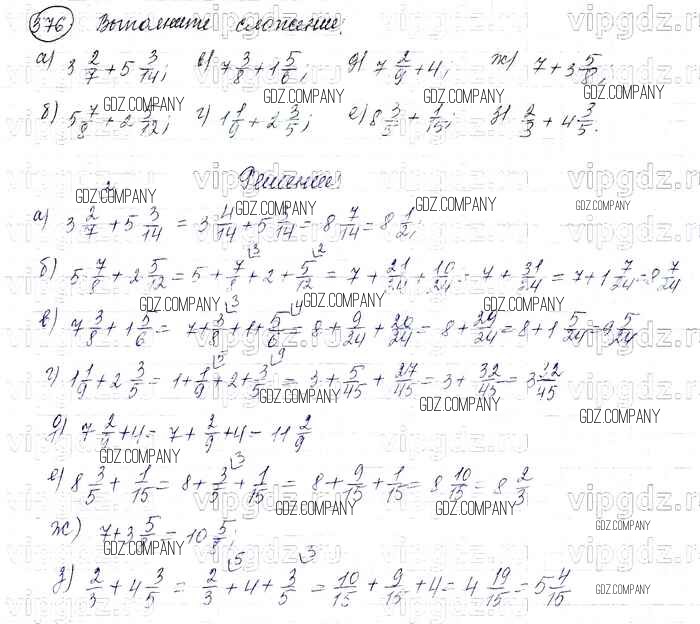 576 Выполните сложение:
а) 3 2/7 + 5 3/14; в) 7 3/8 + 1 5/6; д) 7 2/9 + 4; ж) 7 + 3 5/8;
б) 5 7/8 + 2 5/12; г) 1 1/9 + 2 3/5; е) 8 3/5 + 1/15; з) 2/3 + 4 3/5.
Решение:
а) 3 2/7 + 5 3/14 = 3 4/14 + 5 3/14 = 8 7/14 = 8 1/2;
б) 5 7/8 + 2 5/12 = 5 + 7/8 + 2 + 5/12 = 7 + 21/24 + 10/24 = 7 + 31/24 = 7 + 1 7/24 = 8 7/24
в) 7 3/8 + 1 5/6 = 7 + 3/8 + 1 + 5/6 = 8 + 9/24 + 20/24 = 8 + 29/24 = 8 + 1 5/24 = 9 5/24
г) 1 1/9 + 2 3/5 = 1 + 1/9 + 2 + 3/5 = 3 + 5/45 + 27/45 = 3 + 32/45 = 3 32/45
д) 7 2/9 + 4 = 7 + 2/9 + 4 = 11 2/9
е) 8 3/5 + 1/15 = 8 + 3/5 + 1/15 = 8 + 9/15 + 1/15 = 8 10/15 = 8 2/3
ж) 7 + 3 5/8 = 10 5/8;
з) 2/3 + 4 3/5 = 2/3 + 4 + 3/5 = 10/15 + 9/15 + 4 = 4 19/15 = 5 4/15
GDZ.COMPANY
vipgdz.ru